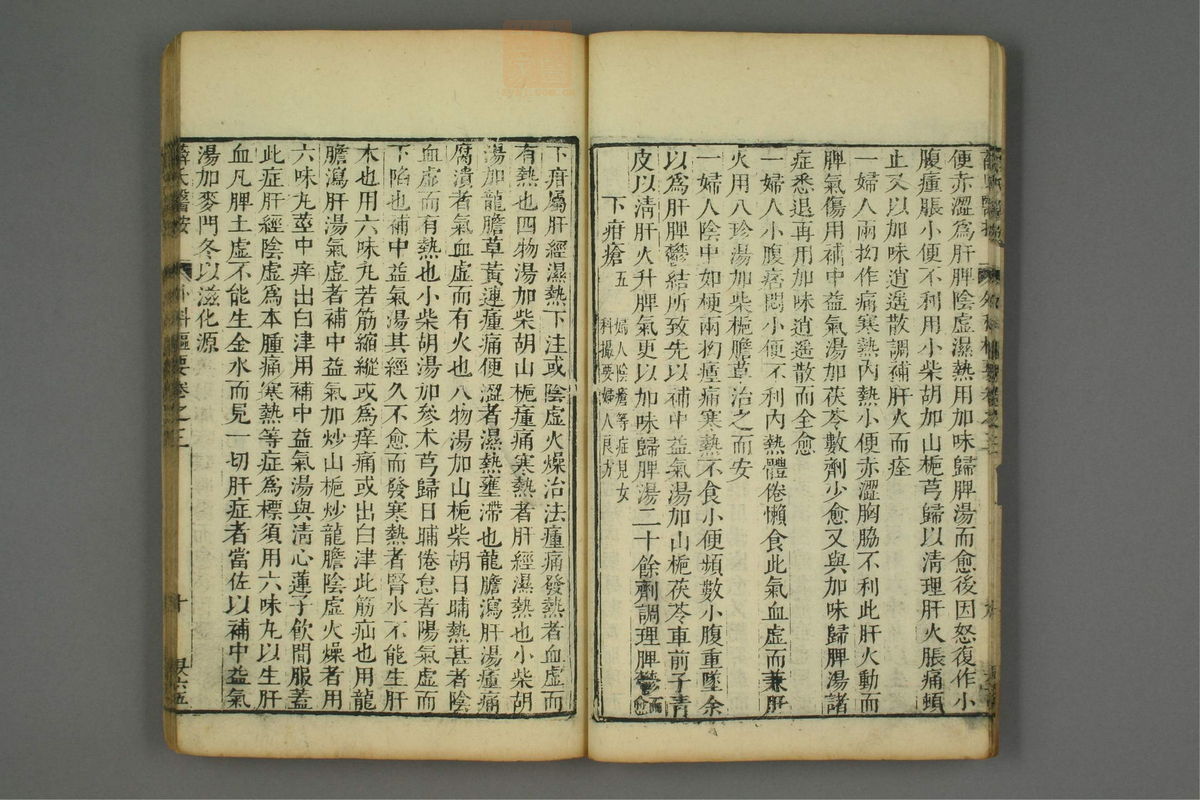 便赤澀爲肝脾陰虛濕熱用加味歸脾湯而愈後因怒復作小
腹瘇脹小便不利用小柴胡加山梔芎歸以清理肝火脹痛頓
止又以加味逍遥散調補肝火而痊
一婦人兩拗作痛寒熱内熱小便赤澀胸脇不利此肝火動而
脾氣傷用補中益氣湯加茯苓數劑少愈又與加味歸脾湯諸
症悉退再用加味逍遥散而全愈
一婦人小腹痞悶小便不利内熱體倦懶食此氣血虛而兼肝
火用八珍湯加柴梔膽草治之而安
一婦人陰中如梗兩拗瘇痛寒熱不食小便頻數小腹重墜余
以爲肝脾鬱結所致先以補中益氣湯加山梔茯苓車前子青
皮以清肝火升脾氣更以加味歸脾湯二十餘劑調理脾鬱而愈
下疳瘡五
婦人陰瘡等症見女
科撮要婦人良方
下疳屬肝經濕熱下注或陰虛火燥治法瘇痛發熱者血虛而
有熱也四物湯加柴胡山梔瘇痛寒熱者肝經濕熱也小柴胡
湯加龍膽草黄連瘇痛便澀者濕熱壅滯也龍膽瀉肝湯瘇痛
腐潰者氣血虛而有火也八物湯加山梔柴胡日晡熱甚者陰
血虛而有熱也小柴胡湯加參朮芎歸日晡倦怠者陽氣虛而
下陷也補中益氣湯其經久不愈而發寒熱者腎水不能生肝
木也用六味丸若筋縮縱或爲痒痛或出白津此筋疝也用龍
膽瀉肝湯氣虛者補中益氣加炒山梔炒龍膽陰虛火燥者用
六味丸莖中痒出白津用補中益氣湯與清心蓮子飲間服蓋
此症肝經陰虛爲本腫痛寒熱等症爲標須用六味丸以生肝
血凡脾土虛不能生金水而見一切肝症者當佐以補中益氣
湯加麥門冬以滋化源
薛氏醫按 外科樞要卷之三 十 昃六五